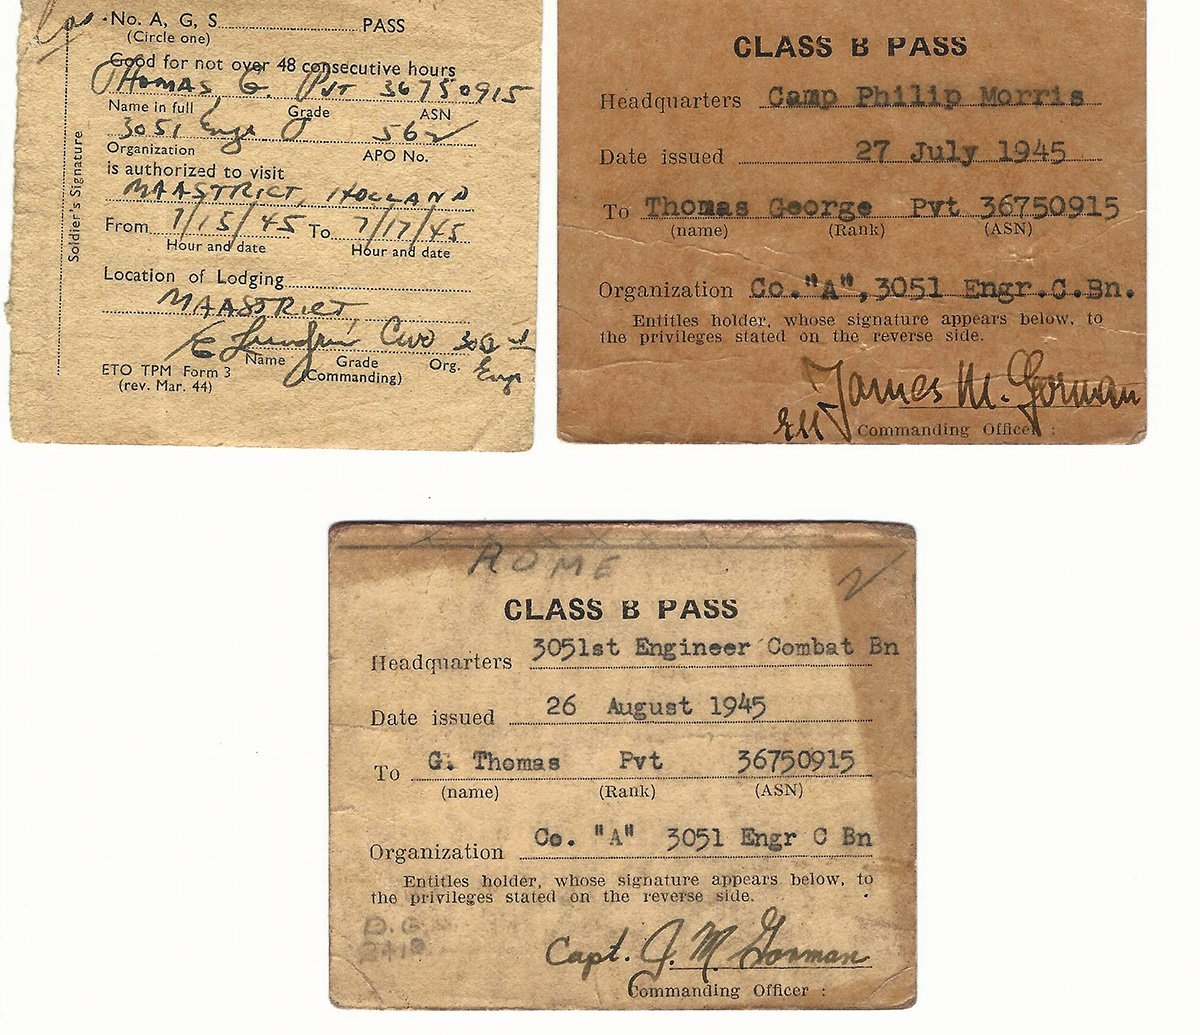 No. A, G, S PASS
(Circle one)
Good for not over 48 consecutive hours
THOMAS G. PVT 36750915
Name in full Grade ASN
3051 Engr 562
Organization APO No.
is authorized to visit
MAASTRICT, HOLLAND
From 7/15/45 To 7/17/45
Hour and date Hour and date
Location of Lodging
MAASTRICT,
CWO 3051st
Name Grade Org. Engr
(Commanding)
ETO TPM Form 3
(rev. Mar. 44)
Soldier's Signature
CLASS B PASS
Headquarters Camp Philip Morris
Date issued 27 July 1945
To Thomas George Pvt 36750915
(name) (Rank) (ASN)
Organization Co."A",3051 Engr.C.Bn.
Entitles holder, whose signature appears below, to
the privileges stated on the reverse side.
James M. Gorman
Commanding Officer :
ROME
CLASS B PASS
Headquarters 3051st Engineer Combat Bn
Date issued 26 August 1945
To G. Thomas Pvt 36750915
(name) (Rank) (ASN)
Organization Co. "A" 3051 Engr C Bn
Entitles holder, whose signature appears below, to
the privileges stated on the reverse side.
Capt. J. M. Gorman
Commanding Officer :